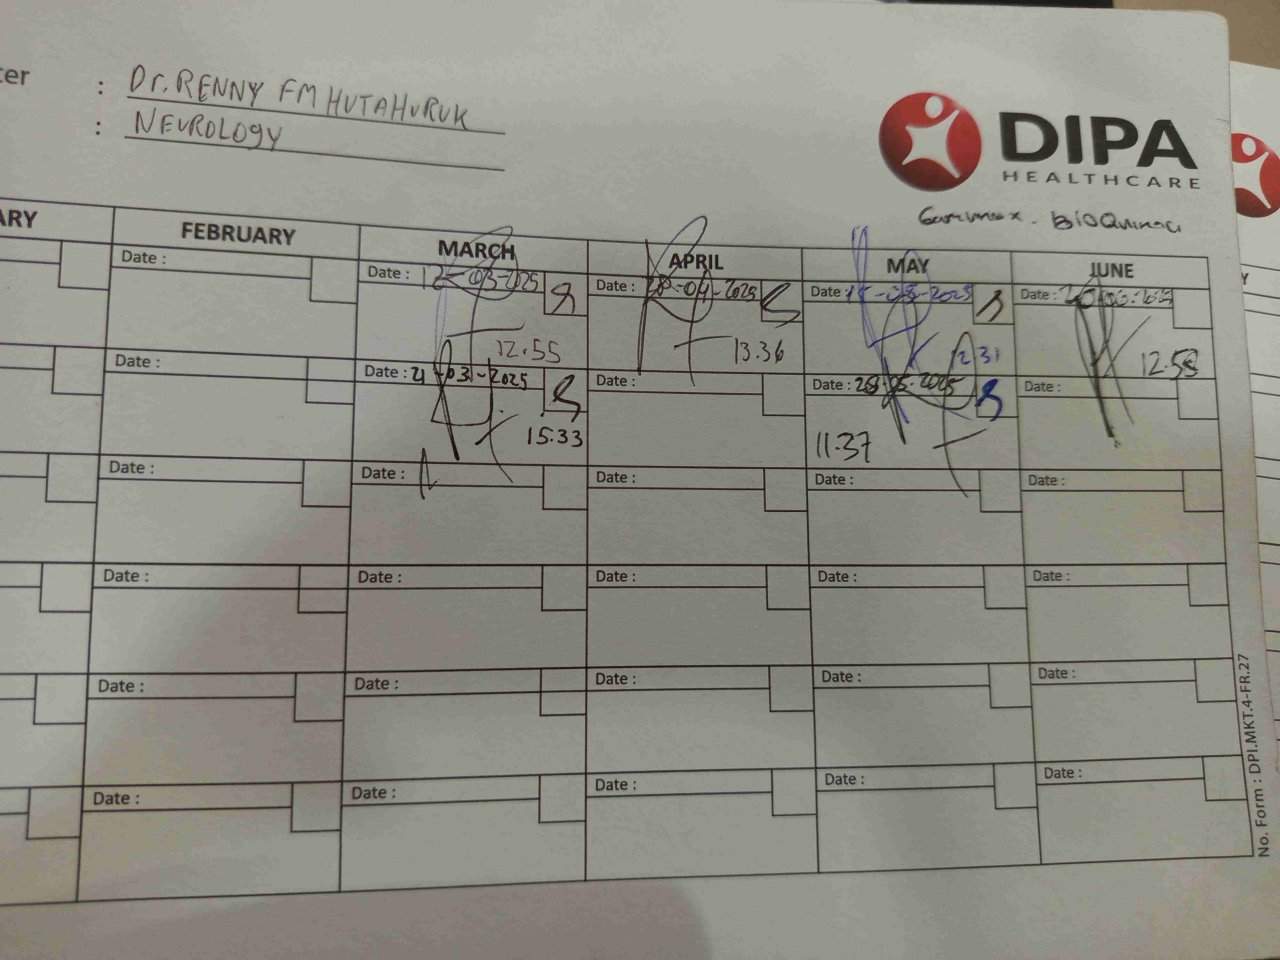 ter : Dr. RENNY FM HUTAHURUK
: NEUROLOGY
DIPA
HEALTHCARE
ARY FEBRUARY MARCH APRIL MAY JUNE
Date : Date : 12-03-2025 Date : 28-04-2025 Date : 15-05-2025 Date :
12.55 13.36 12 31 12.58
Date : Date : 21-03-2025 Date : Date : 28-05-2025 Date :
15.33 11.37
Date : Date : Date : Date : Date :
Date : Date : Date : Date : Date :
Date : Date : Date : Date : Date :
Date : Date : Date : Date : Date :
No. Form : DPI.MKT.4-FR.27
Y